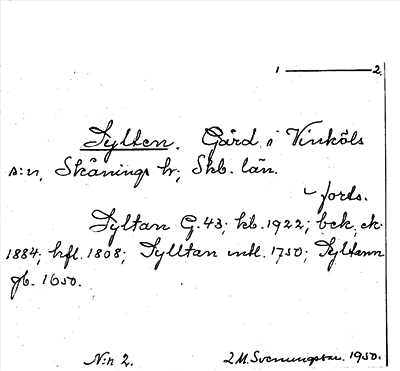 1 ——— 2.
Sylten. Gård i Vinköls
s:n, Skånings hr; Skb. län.
forts.
Syltan G.43; kb. 1922; bek, ek.
1884; hfl. 1808; Sylltan intl. 1750; Syltann
jb. 1650.
N:r 2. L M. Svenungsson. 1950.